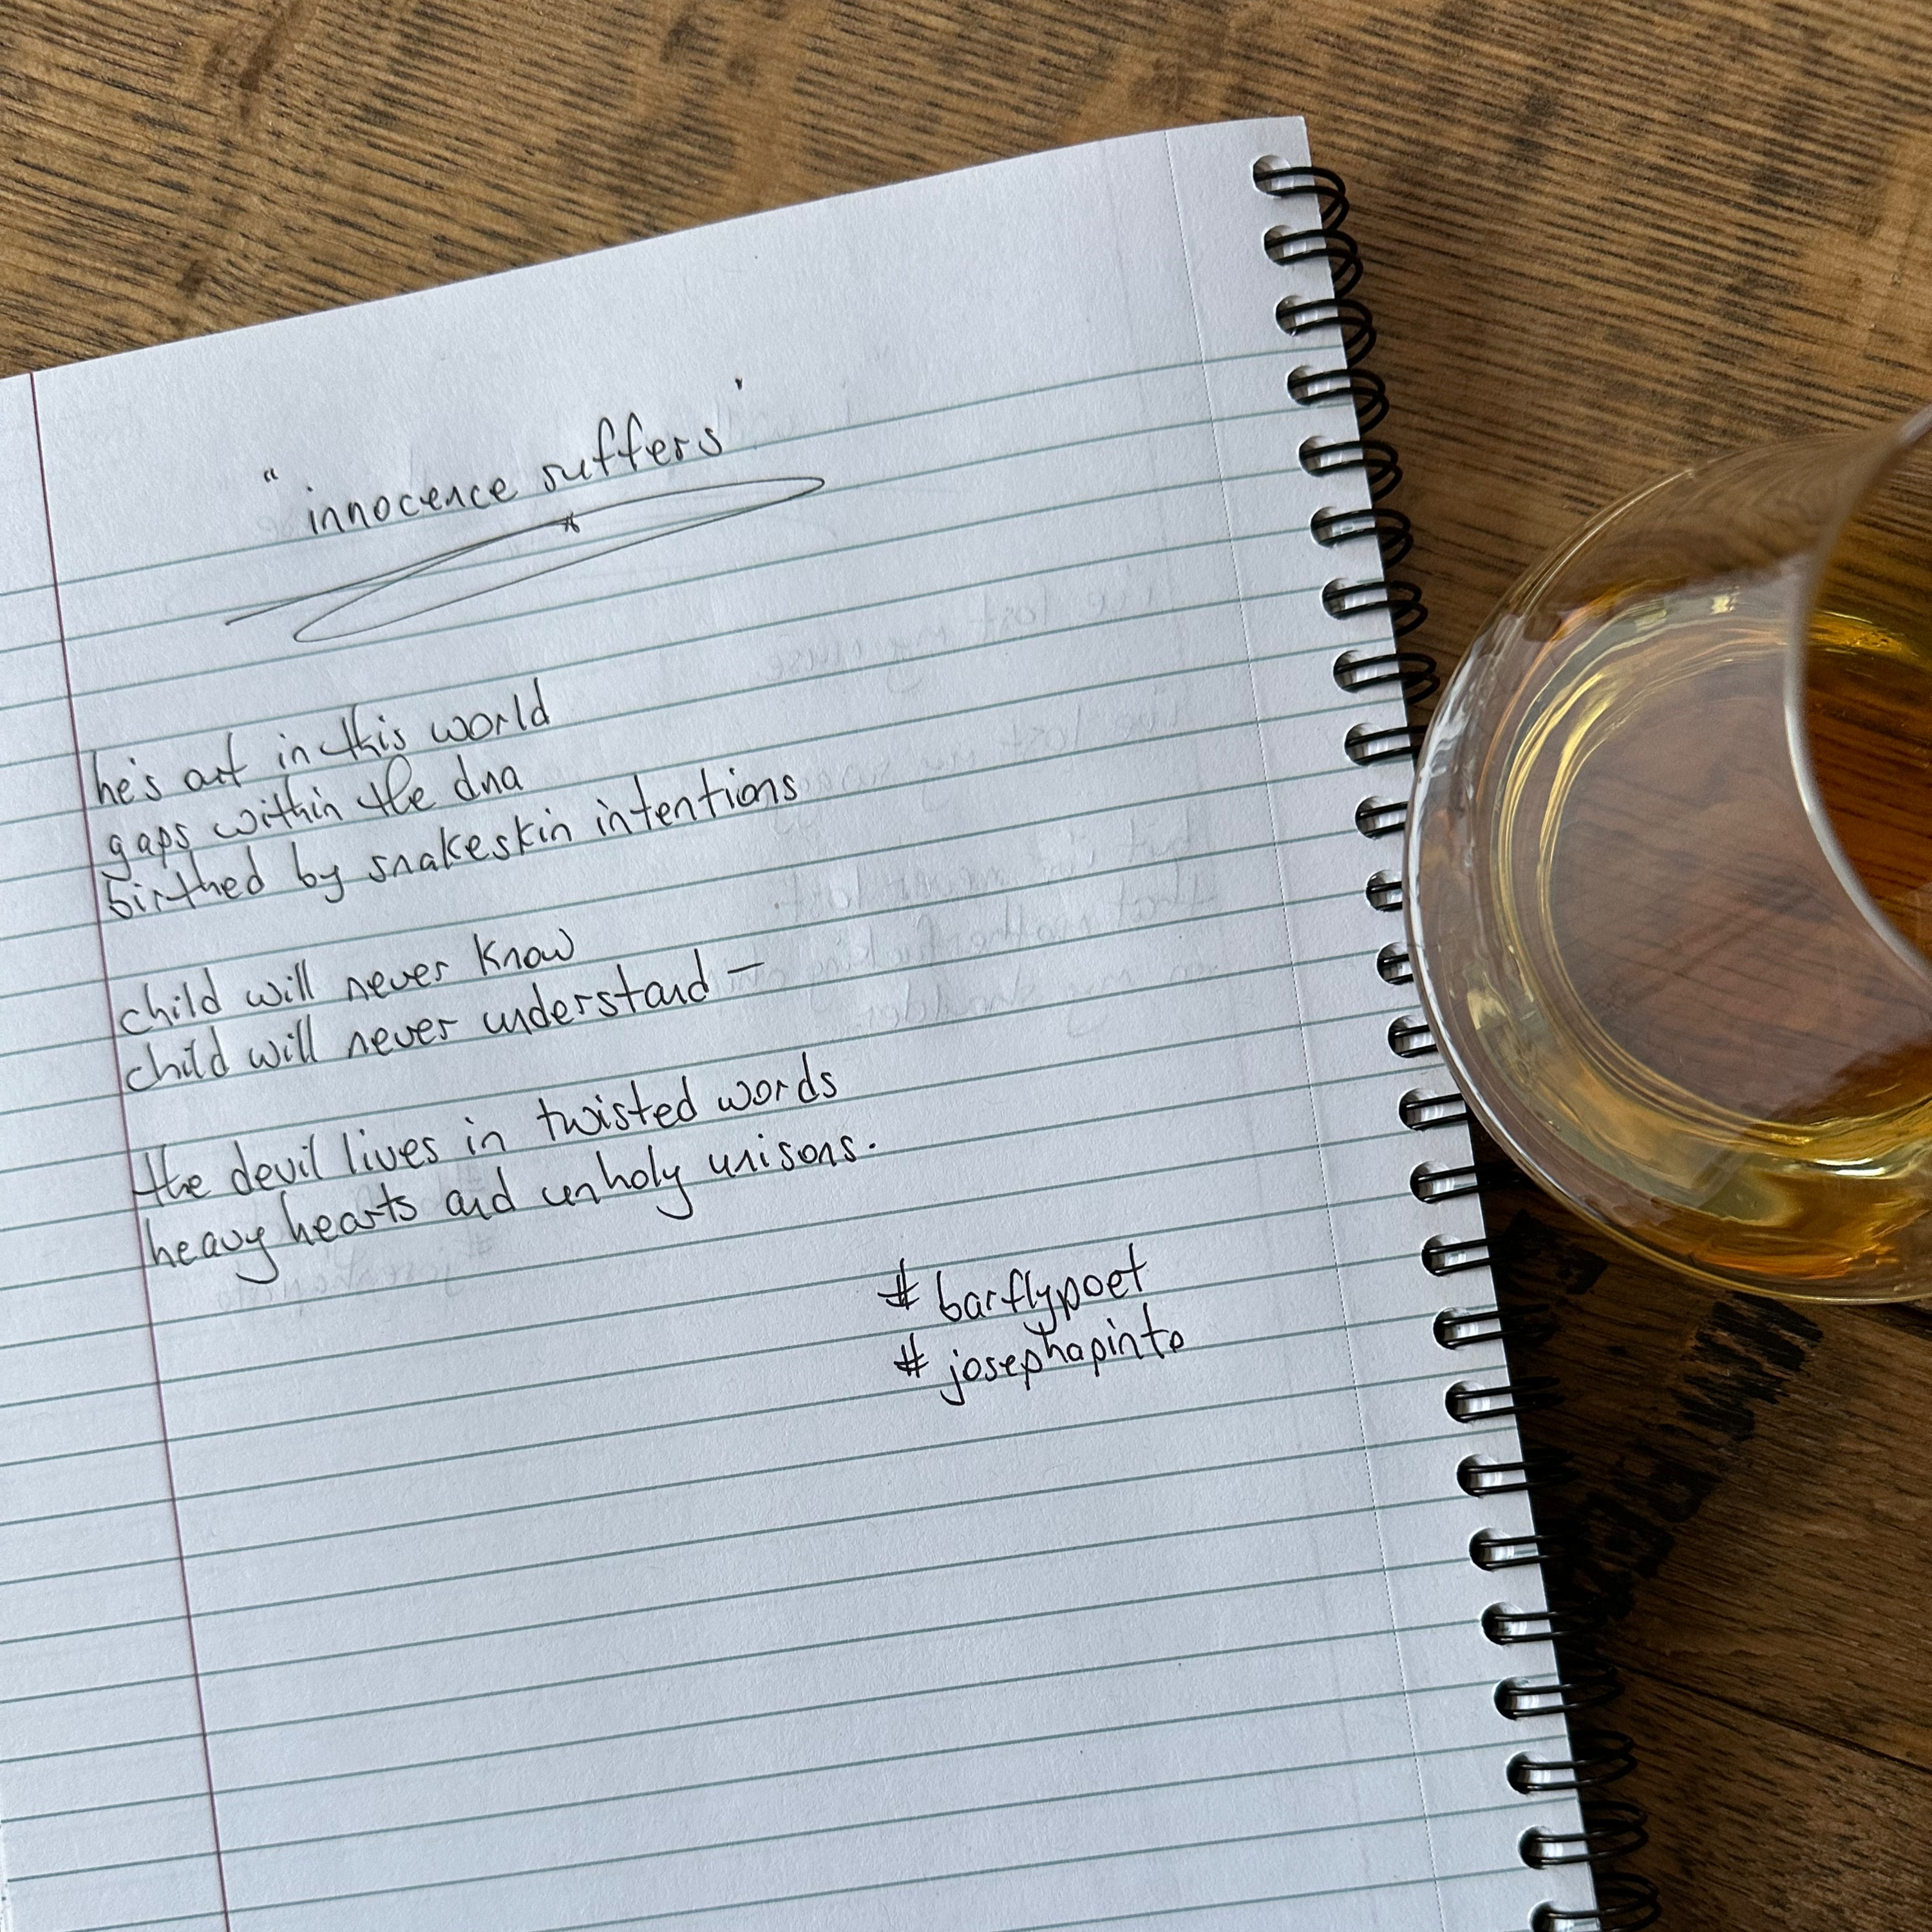 "innocence suffers"
he's out in this world
gaps within the dna
birthed by snakeskin intentions
child will never know
child will never understand —
the devil lives in twisted words
heavy hearts and unholy unisons.
# barflypoet
# josephapinto